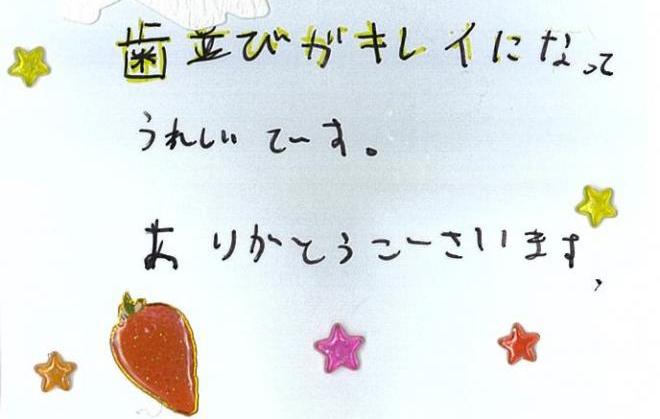 歯並びがキレイになって
うれしいでーす。
ありがとうございます、